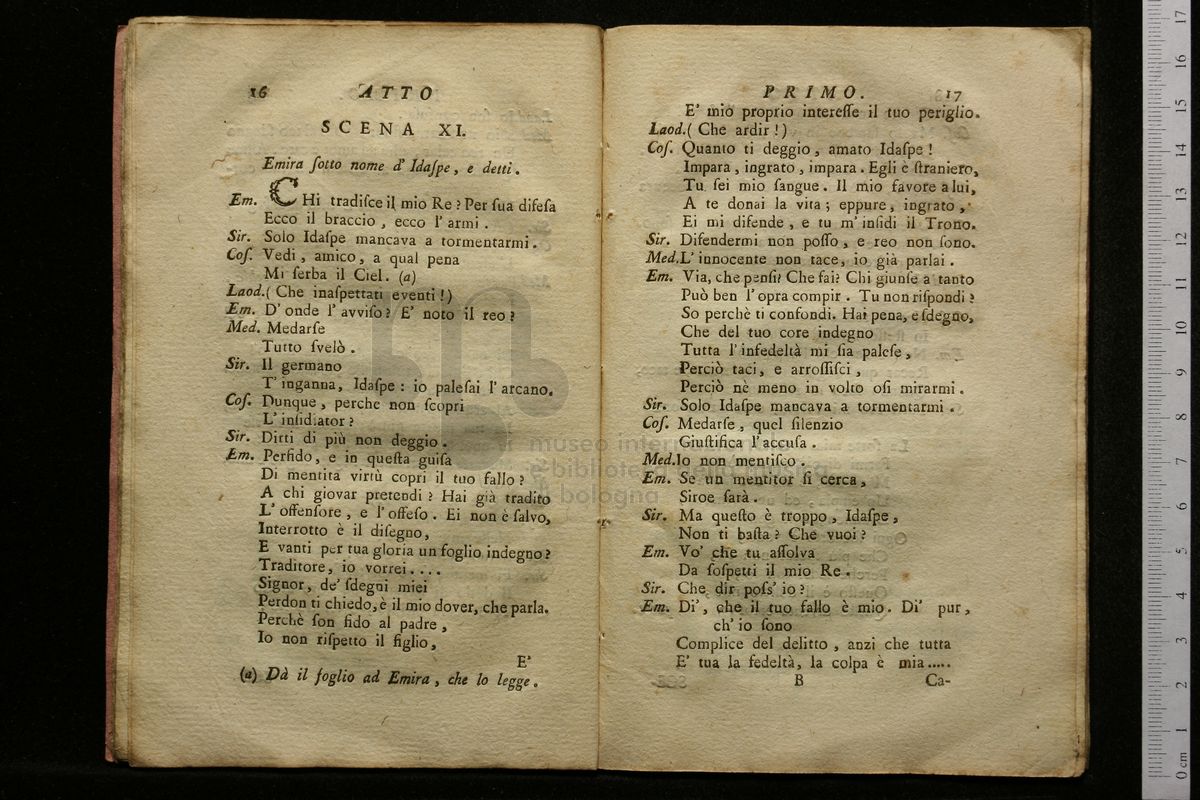 16 ATTO
SCENA XI.
Emira ſotto nome d' Idaſpe, e detti.
Em. CHi tradiſce il mio Re? Per ſua difeſa
Ecco il braccio, ecco l' armi.
Sir. Solo Idaſpe mancava a tormentarmi.
Coſ. Vedi, amico, a qual pena
Mi ſerba il Ciel. (a)
Laod. ( Che inaſpettati eventi!)
Em. D' onde l' avviſo? E' noto il reo?
Med. Medarſe
Tutto ſvelò.
Sir. Il germano
T' inganna, Idaſpe: io paleſai l' arcano.
Coſ. Dunque, perche non ſcopri
L' inſidiator?
Sir. Dirti di più non deggio.
Em. Perfido, e in queſta guiſa
Di mentita virtù copri il tuo fallo?
A chi giovar pretendi? Hai già tradito
L' offenſore, e l' offeſo. Ei non è ſalvo,
Interrotto è il diſegno,
E vanti per tua gloria un foglio indegno?
Traditore, io vorrei....
Signor, de' ſdegni miei
Perdon ti chiedo, è il mio dover, che parla.
Perchè ſon fido al padre,
Io non riſpetto il figlio,
E'
(a) Dà il foglio ad Emira, che lo legge.
PRIMO. 17
E' mio proprio intereſſe il tuo periglio.
Laod. ( Che ardir!)
Coſ. Quanto ti deggio, amato Idaſpe!
Impara, ingrato, impara. Egli è ſtraniero,
Tu ſei mio ſangue. Il mio favore a lui,
A te donai la vita; eppure, ingrato,
Ei mi difende, e tu m' inſidi il Trono.
Sir. Difendermi non poſſo, e reo non ſono.
Med. L' innocente non tace, io già parlai.
Em. Via, che penſi? Che fai? Chi giunſe a tanto
Può ben l' opra compir. Tu non riſpondi?
So perchè ti confondi. Hai pena, e ſdegno,
Che del tuo core indegno
Tutta l' infedeltà mi ſia paleſe,
Perciò taci, e arroſſiſci,
Perciò nè meno in volto oſi mirarmi.
Sir. Solo Idaſpe mancava a tormentarmi.
Coſ. Medarſe, quel ſilenzio
Giuſtifica l' accuſa.
Med. Io non mentiſco.
Em. Se un mentitor ſi cerca,
Siroe ſarà.
Sir. Ma queſto è troppo, Idaſpe,
Non ti baſta? Che vuoi?
Em. Vo' che tu aſſolva
Da ſoſpetti il mio Re.
Sir. Che dir poſs' io?
Em. Di', che il tuo fallo è mio. Di' pur,
ch' io ſono
Complice del delitto, anzi che tutta
E' tua la fedeltà, la colpa è mia.....
B Ca-
museo internazionale
e biblioteca della musica
bologna
0 cm 1 2 3 4 5 6 7 8 9 10 11 12 13 14 15 16 17